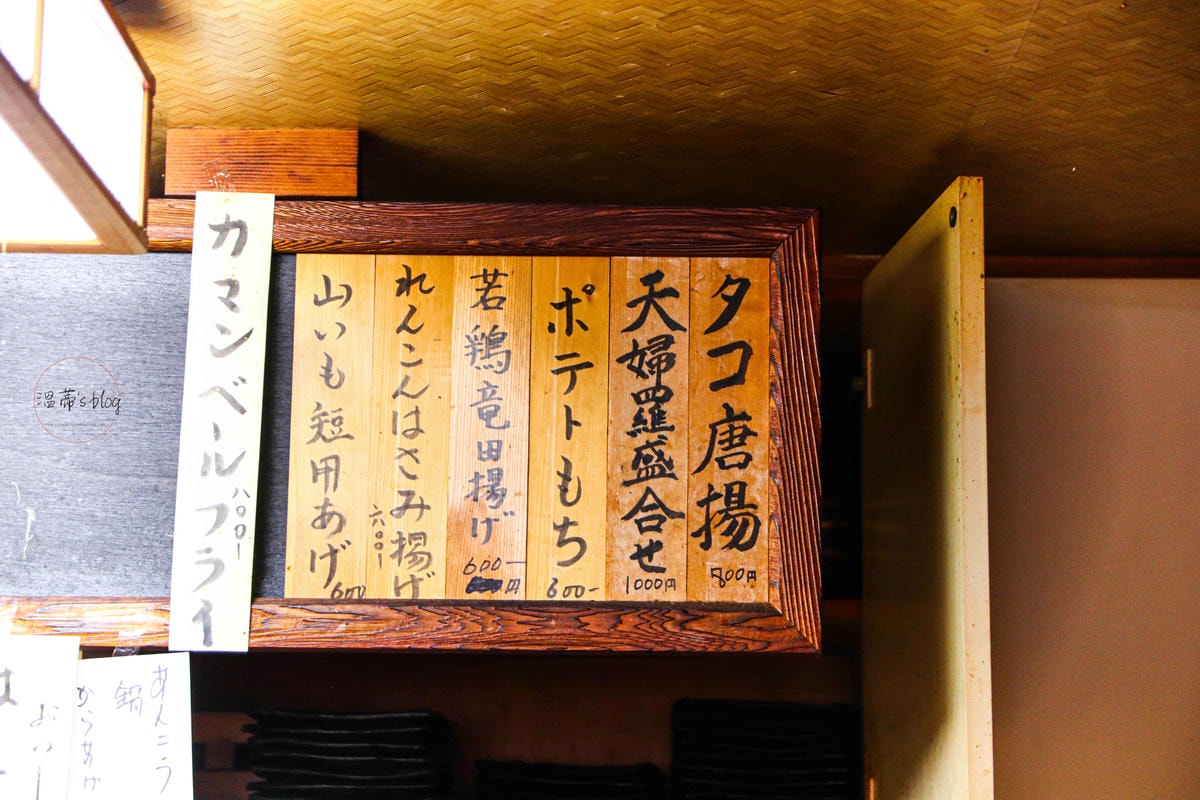 タコ唐揚
800円
天婦羅盛合せ
1000円
ポテトもち
600-
若鶏竜田揚げ
600-
円
れんこんはさみ揚げ
六〇〇-
山いも短冊あげ
600
カマンベールフライ
八〇〇-
あんこう
鍋
からあげ
温蒂's blog